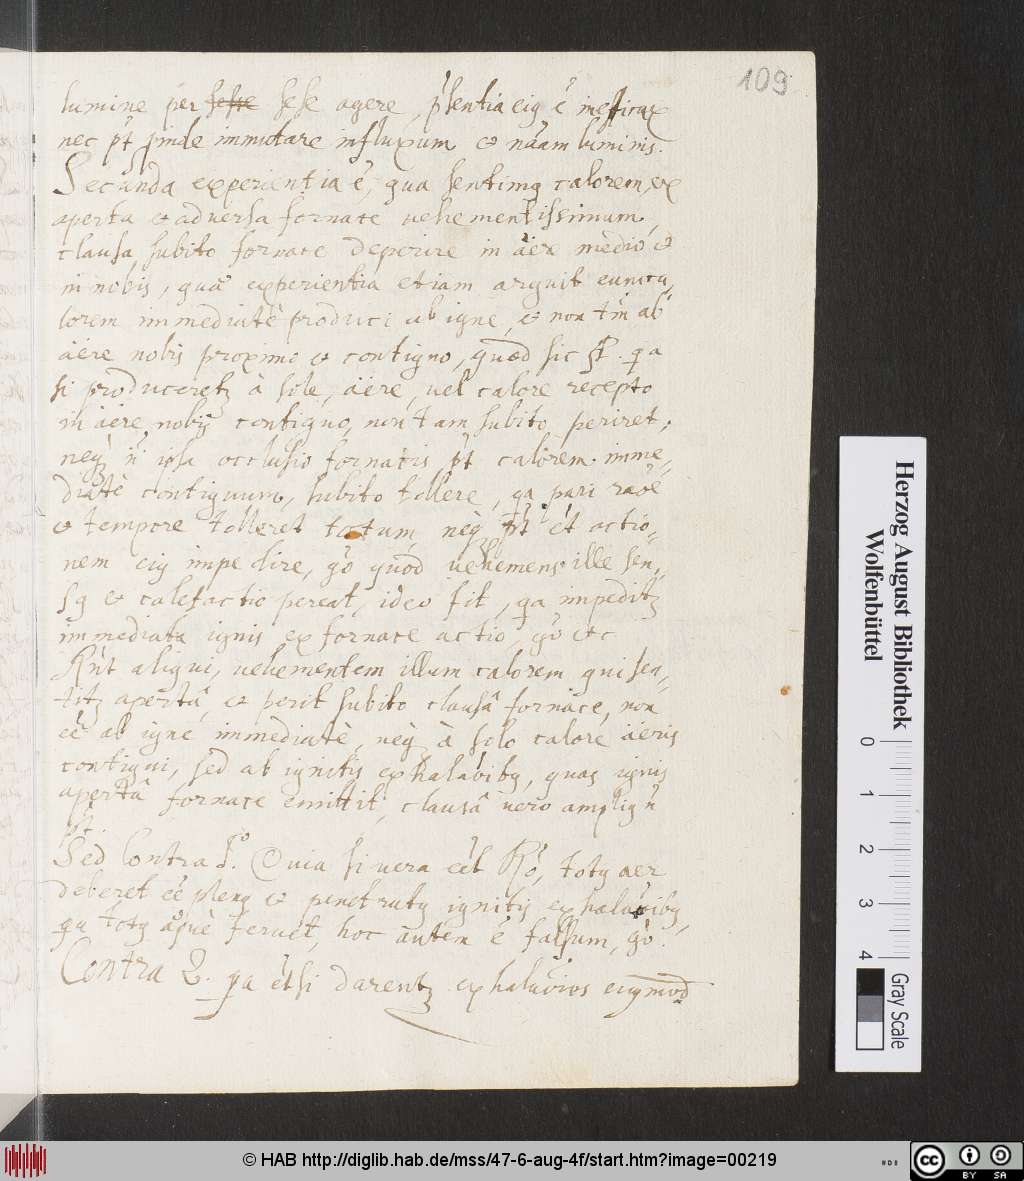 109
lumine per seste sese agere, p̃sentia eiꝯ ẽ inefficax
nec pt̃ jnde immutare influxum & nãam luminis.
Secunda experientia ẽ, qua sentimꝯ calorem, ex
aperta & adversa fornace vehementissimum,
clausa subito fornace deperire in àere mèdio &
in nobis, quæ experientia etiam arguit eum ca„
lorem immediatè produci ab igne, & non tm̃ ab
àëre nobis proximo & contiguo, quod sic qa
si produceretꝫ à sole, àëre, vel calore recepto
in àëre nobis contiguo, non tam subito periret,
neqꝫ n̄ ipsa occlusio fornacis pt̃ calorem imme„
diatè contiguum, subito tollere, qa pari raõe
& tempore tolleret totum, neqꝫ pt̃ et actio„
nem eiꝯ impedire, gò quod vehemens ille sen„
sꝯ & calefactio pereat, ideo fit, qa impeditꝫ
immediata ignis ex fornace actio, gò etc
Rñt aliqui, vehementem illum calorem qui sen„
titꝫ apertâ, & perit subito clausâ fornace, non
eẽ ab igne immediatè, neqꝫ à solo calore àëris
contigui, sed ab ignitis exhalaõibꝯ, quas ignis
apertâ fornace emittit, clausâ vero ampliꝯ ñ
pt̃.
Sed Contra 1º. Quia si vera eẽt Rõ, totꝯ aer
deberet eẽ plenꝯ & penetratꝯ ignitis exhalaõibꝯ,
qa totꝯ aequè fervet, hoc autem ẽ falsum, gò.
Contra 2. qa etsi darentꝫ exhalaõios eiꝯmodi
Herzog August Bibliothek
Wolfenbüttel
0 1 2 3 4
Gray Scale
© HAB http://diglib.hab.de/mss/47-6-aug-4f/start.htm?image=00219
cc BY SA